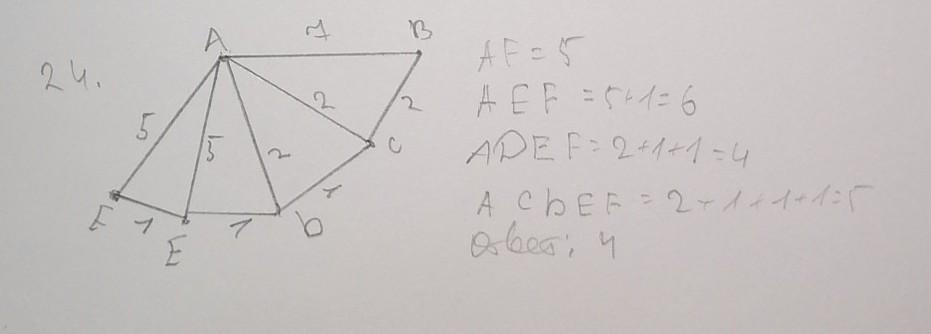 24.
A
7
B
5
5
2
2
2
C
1
D
1
E
1
F
AF = 5
AEF = 5+1=6
ADEF = 2+1+1=4
ACDEF = 2+1+1+1=5
Ответ: 4